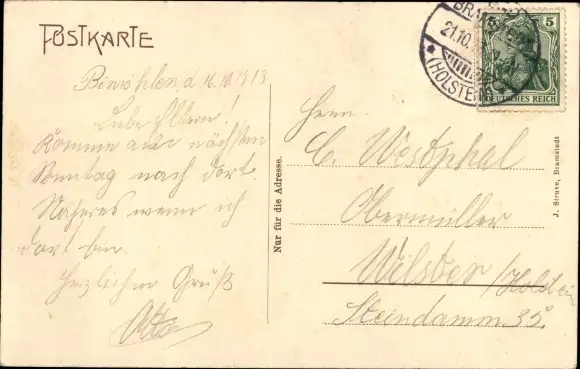 POSTKARTE
Bimöhlen, d. 16.10.1913
Liebe Eltern!
Komme am nächsten
Sonntag nach dort.
Näheres wenn ich
dort bin.
Herzlichen Gruß
Otto
Nur für die Adresse.
BRAMSTEDT
21.10.
* (HOLSTEIN)
5 5
DEUTSCHES REICH
Herrn
C. Westphal
Obermüller
Wilster/Holstein
Steindamm 35.
J. Struve, Bramstedt